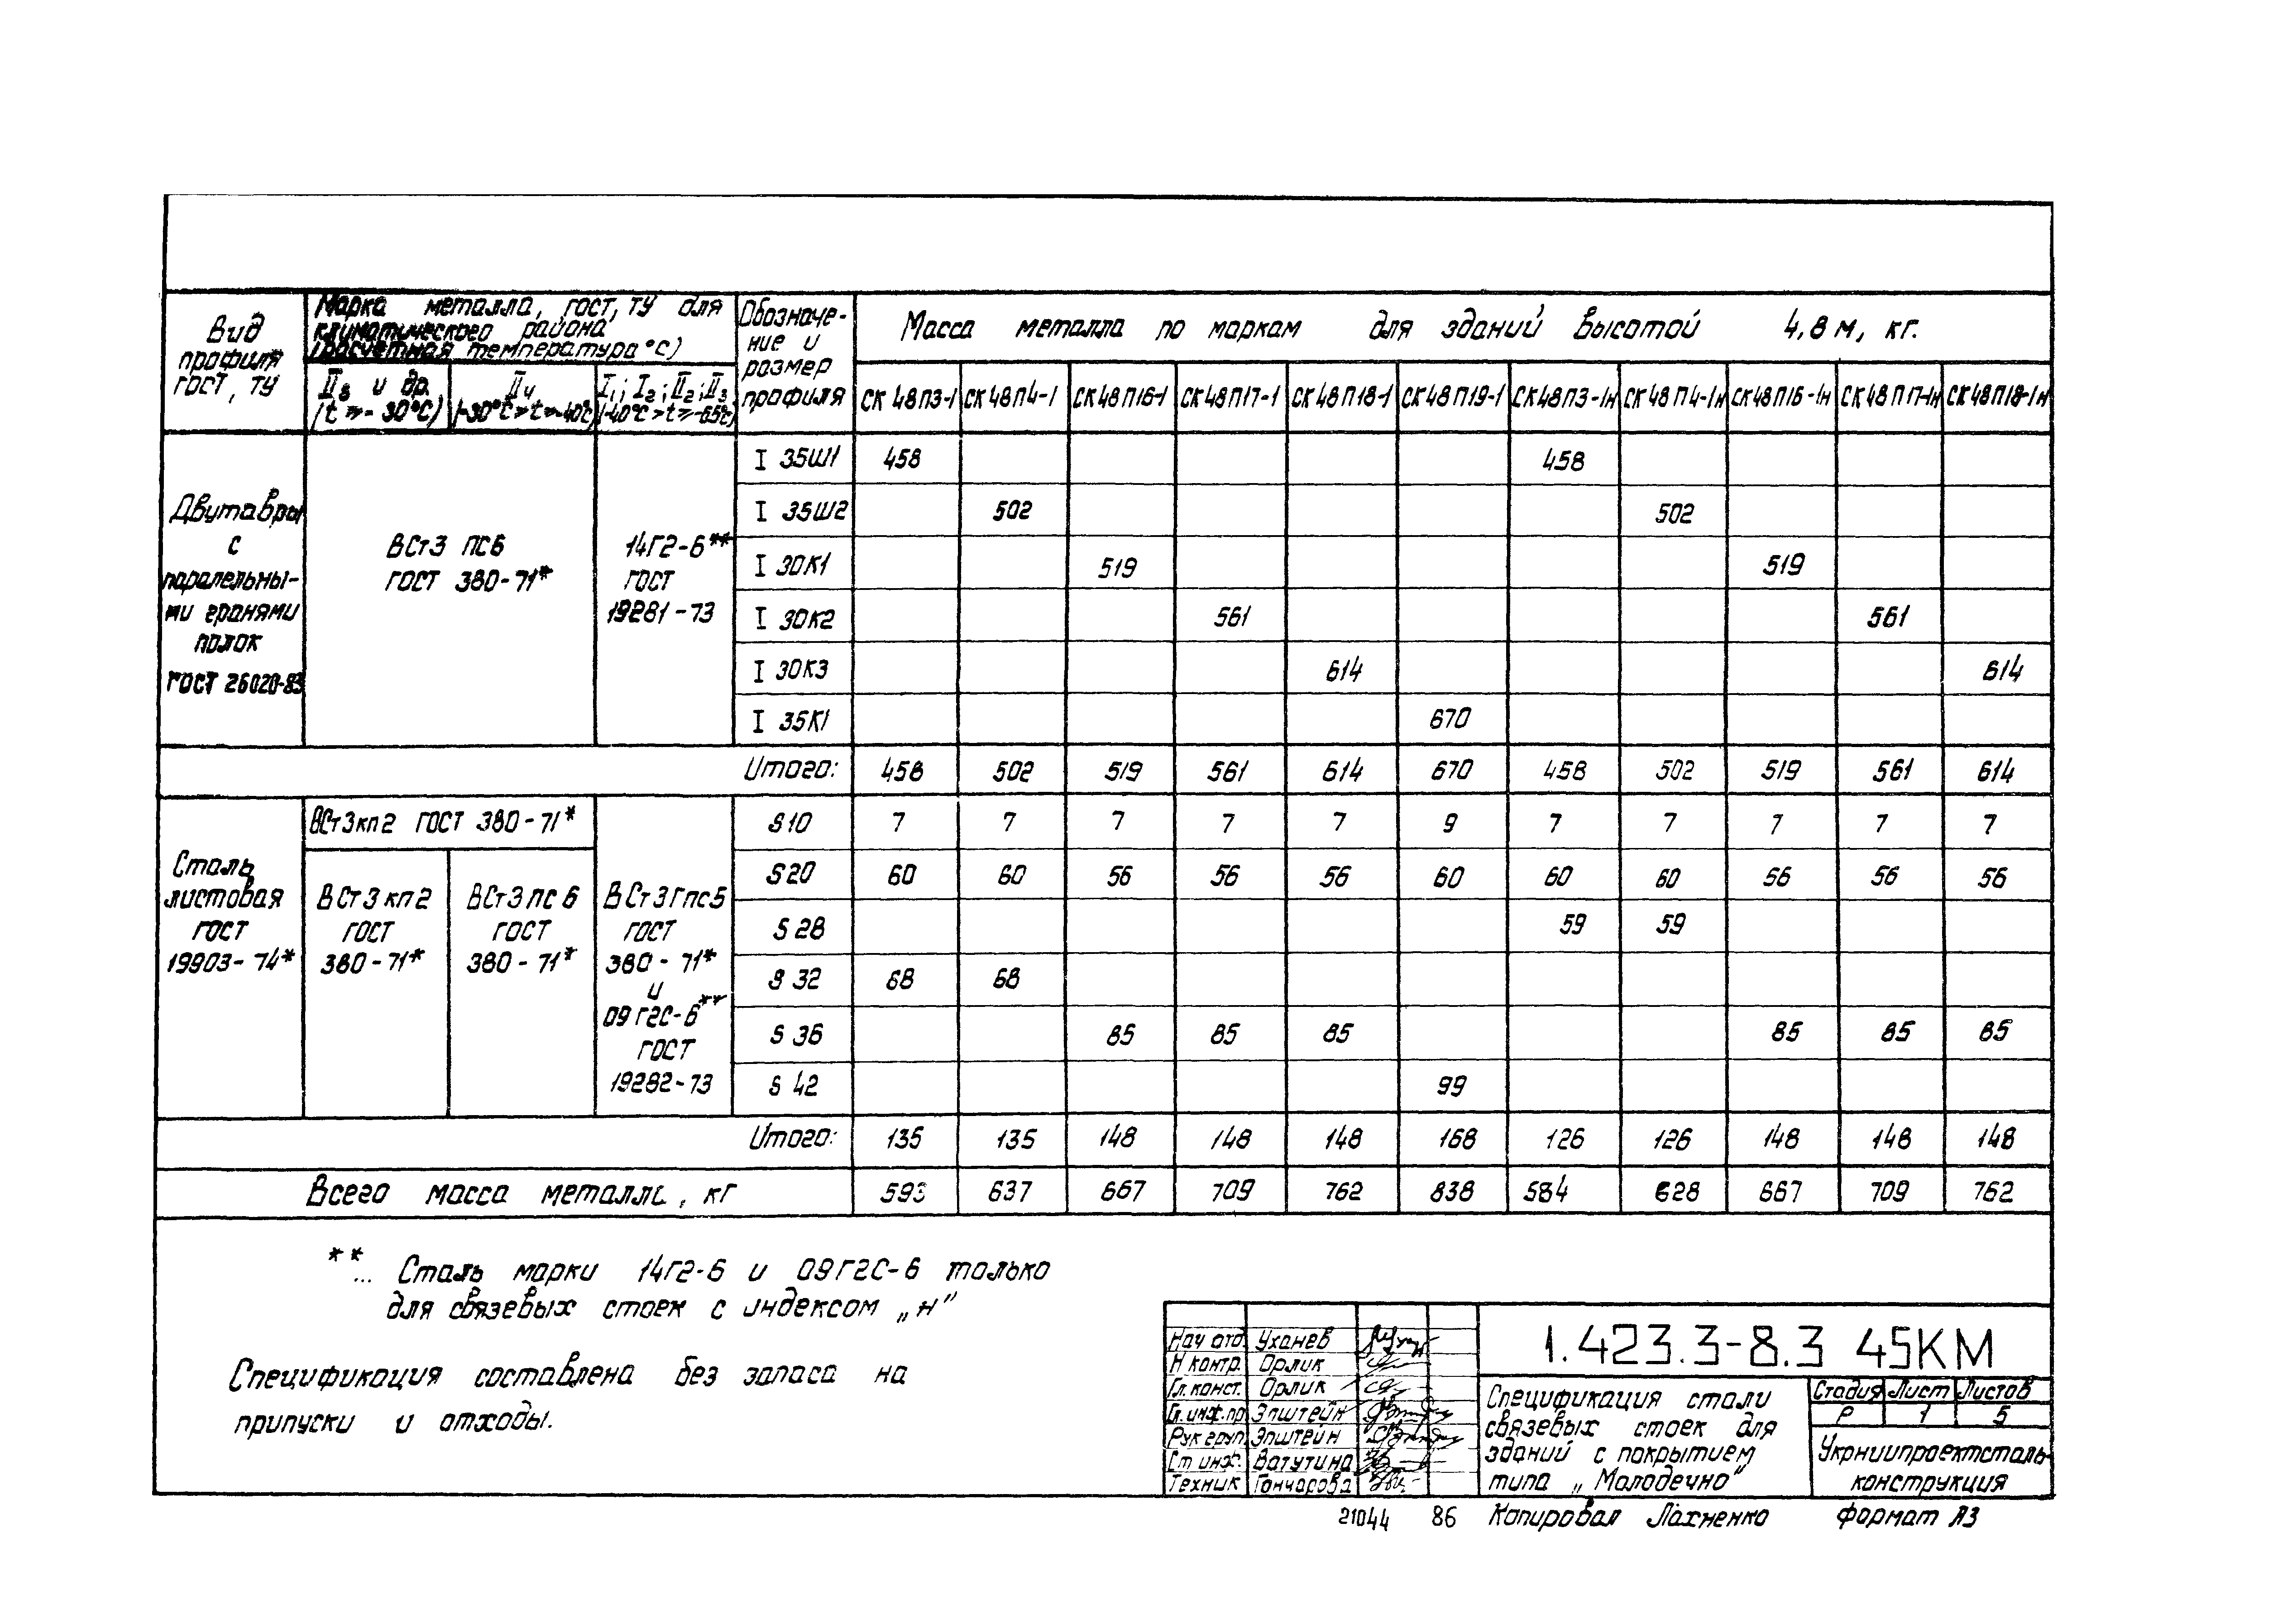 Вид профиля ГОСТ, ТУ
Марка металла, ГОСТ, ТУ для климатического района (расчетная температура °С)
Обозначение и размер профиля
Масса металла по маркам для зданий высотой 4,8 м, кг.
II₃ и др. (t ≥ -30°С)
II₄ (-30°С > t ≥ -40°С)
I₁; I₂; II₂; II₃ (-40°С > t ≥ -65°С)
СК48П3-1 СК48П4-1 СК48П16-1 СК48П17-1 СК48П18-1 СК48П19-1 СК48П3-1н СК48П4-1н СК48П16-1н СК48П17-1н СК48П18-1н
Двутавры
с
паралельны-
ми гранями
полок
ГОСТ 26020-83
ВСт3 ПС6
ГОСТ 380-71*
14Г2-6**
ГОСТ
19281-73
I 35Ш1 458 458
I 35Ш2 502 502
I 30К1 519 519
I 30К2 561 561
I 30К3 614 614
I 35К1 670
Итого: 458 502 519 561 614 670 458 502 519 561 614
Сталь
листовая
ГОСТ
19903-74*
ВСт3кп2 ГОСТ 380-71*
ВСт3кп2
ГОСТ
380-71*
ВСт3пс6
ГОСТ
380-71*
ВСт3Гпс5
ГОСТ
380-71*
и
09Г2С-6**
ГОСТ
19282-73
S10 7 7 7 7 7 9 7 7 7 7 7
S20 60 60 56 56 56 60 60 60 56 56 56
S 28 59 59
S 32 68 68
S 36 85 85 85 85 85 85
S 42 99
Итого: 135 135 148 148 148 168 126 126 148 148 148
Всего масса металла, кг 593 637 667 709 762 838 584 628 667 709 762
**... Сталь марки 14Г2-6 и 09Г2С-6 только
для связевых стоек с индексом „н”
Спецификация составлена без запаса на
припуски и отходы.
Нач отд. Уханев
Н контр. Орлик
Гл. конст. Орлик
Гл. инж. пр Эпштейн
Рук груп Эпштейн
Ст инж. Ватутина
Техник Гончарова
1.423.3-8.3 45КМ
Спецификация стали
связевых стоек для
зданий с покрытием
типа „Молодечно”
Стадия Лист Листов
Р 1 5
Укрниипроектсталь-
конструкция
21044 86 Копировал Лахненко Формат А3